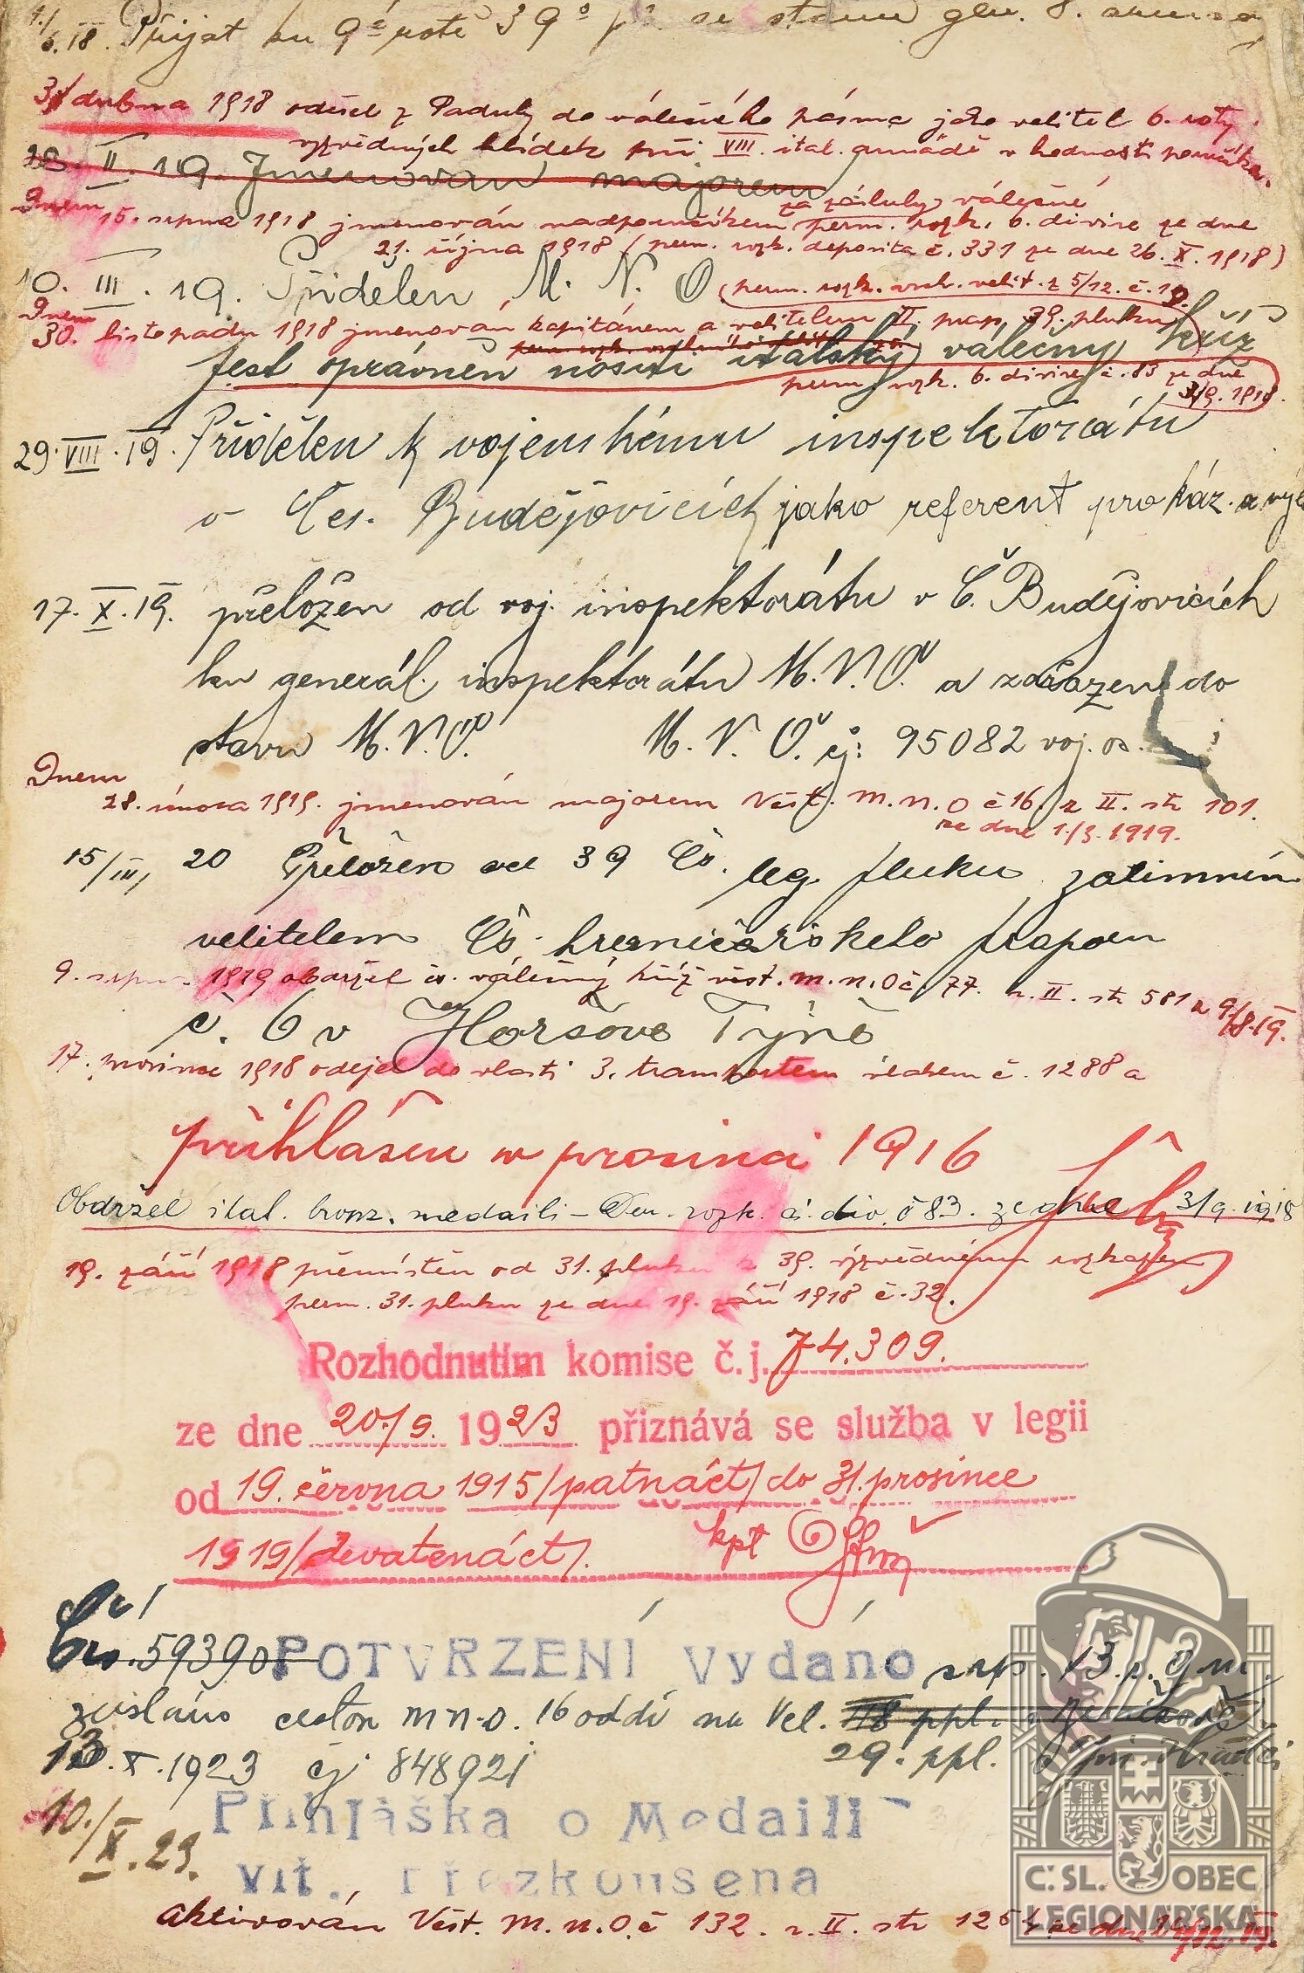 1./6.18. Přijat ku 9é rotě 39º
3/ dubna 1918 odešel z Paduly do válečného pásma jako velitel 6. roty
výzvědných hlídek při VIII. ital. armádě v hodnosti poručíka.
28. II. 19. Jmenován majorem
za zásluhy válečné
Dnem 15. srpna 1918 jmenován nadporučíkem perm. rozk. 6. divise ze dne
21. října 1918 (perm. rozk. deposita č. 331 ze dne 26. X. 1918)
10. III. 19. Přidělen M. N. O.
perm. rozk. vrch. velit. z 5/12. č. 19.
Dnem 30. listopadu 1918 jmenován kapitánem a velitelem II. prap. 39. pluku
Jest oprávněn nositi italský válečný kříž
perm. rozk. 6. divise č. 83 ze dne
3/9. 1918.
29. VIII. 19. Přidělen k vojenskému inspektorátu
v Čes. Budějovicích jako referent pro káz. a
17. X. 19. přeložen od voj. inspektorátu v Č. Budějovicích
ku generál. inspektorátu M.N.O. a zařazen do
stavu M.N.O. M.N.O. čj: 95082 voj. os.
Dnem
28. února 1919. jmenován majorem Věst. m.n.O č 16. z II. str 101.
ze dne 1./3. 1919.
15/III, 20 Přeložen od 39 čs. leg. pluku zatimním
velitelem čs. hraničářského praporu
9. srpna 1919 obdržel čs. válečný kříž věst. m.n.O č. 77. r. II. str 581 z 9/8.19.
č. 6 v Horšově Týně
17. prosince 1918 odejel do vlasti 3. transportem vlakem č. 1288 a
přihlášen w prosinci 1916
Obdržel ital. bronz. medaili - Den. rozk. 6. div. č 83. ze dne 3/9. 1918
19. září 1918 přemístěn od 31. pluku k 39. výzvědnému rozkazem
perm. 31. pluku ze dne 19. září 1918 č. 32.
Rozhodnutím komise č. j. 74.309.
ze dne 20./9. 1923 přiznává se služba v legii
od 19. června 1915 /patnáct/ do 31. prosince
1919 /devatenáct/. kpt
čís. 59390 POTVRZENÍ Vydáno srp. 13.
zasláno cestou M N.O. 16 odd na Vel.
13. X. 1923 čj 848921 29. ppl. v Jin. Hradci
10./X. 23. Přihláška o Medaili
vít. Přezkoušena
Aktivován Věst. M.n.O. č 132. r. II. str
Č. SL. OBEC
LEGIONÁŘSKÁ